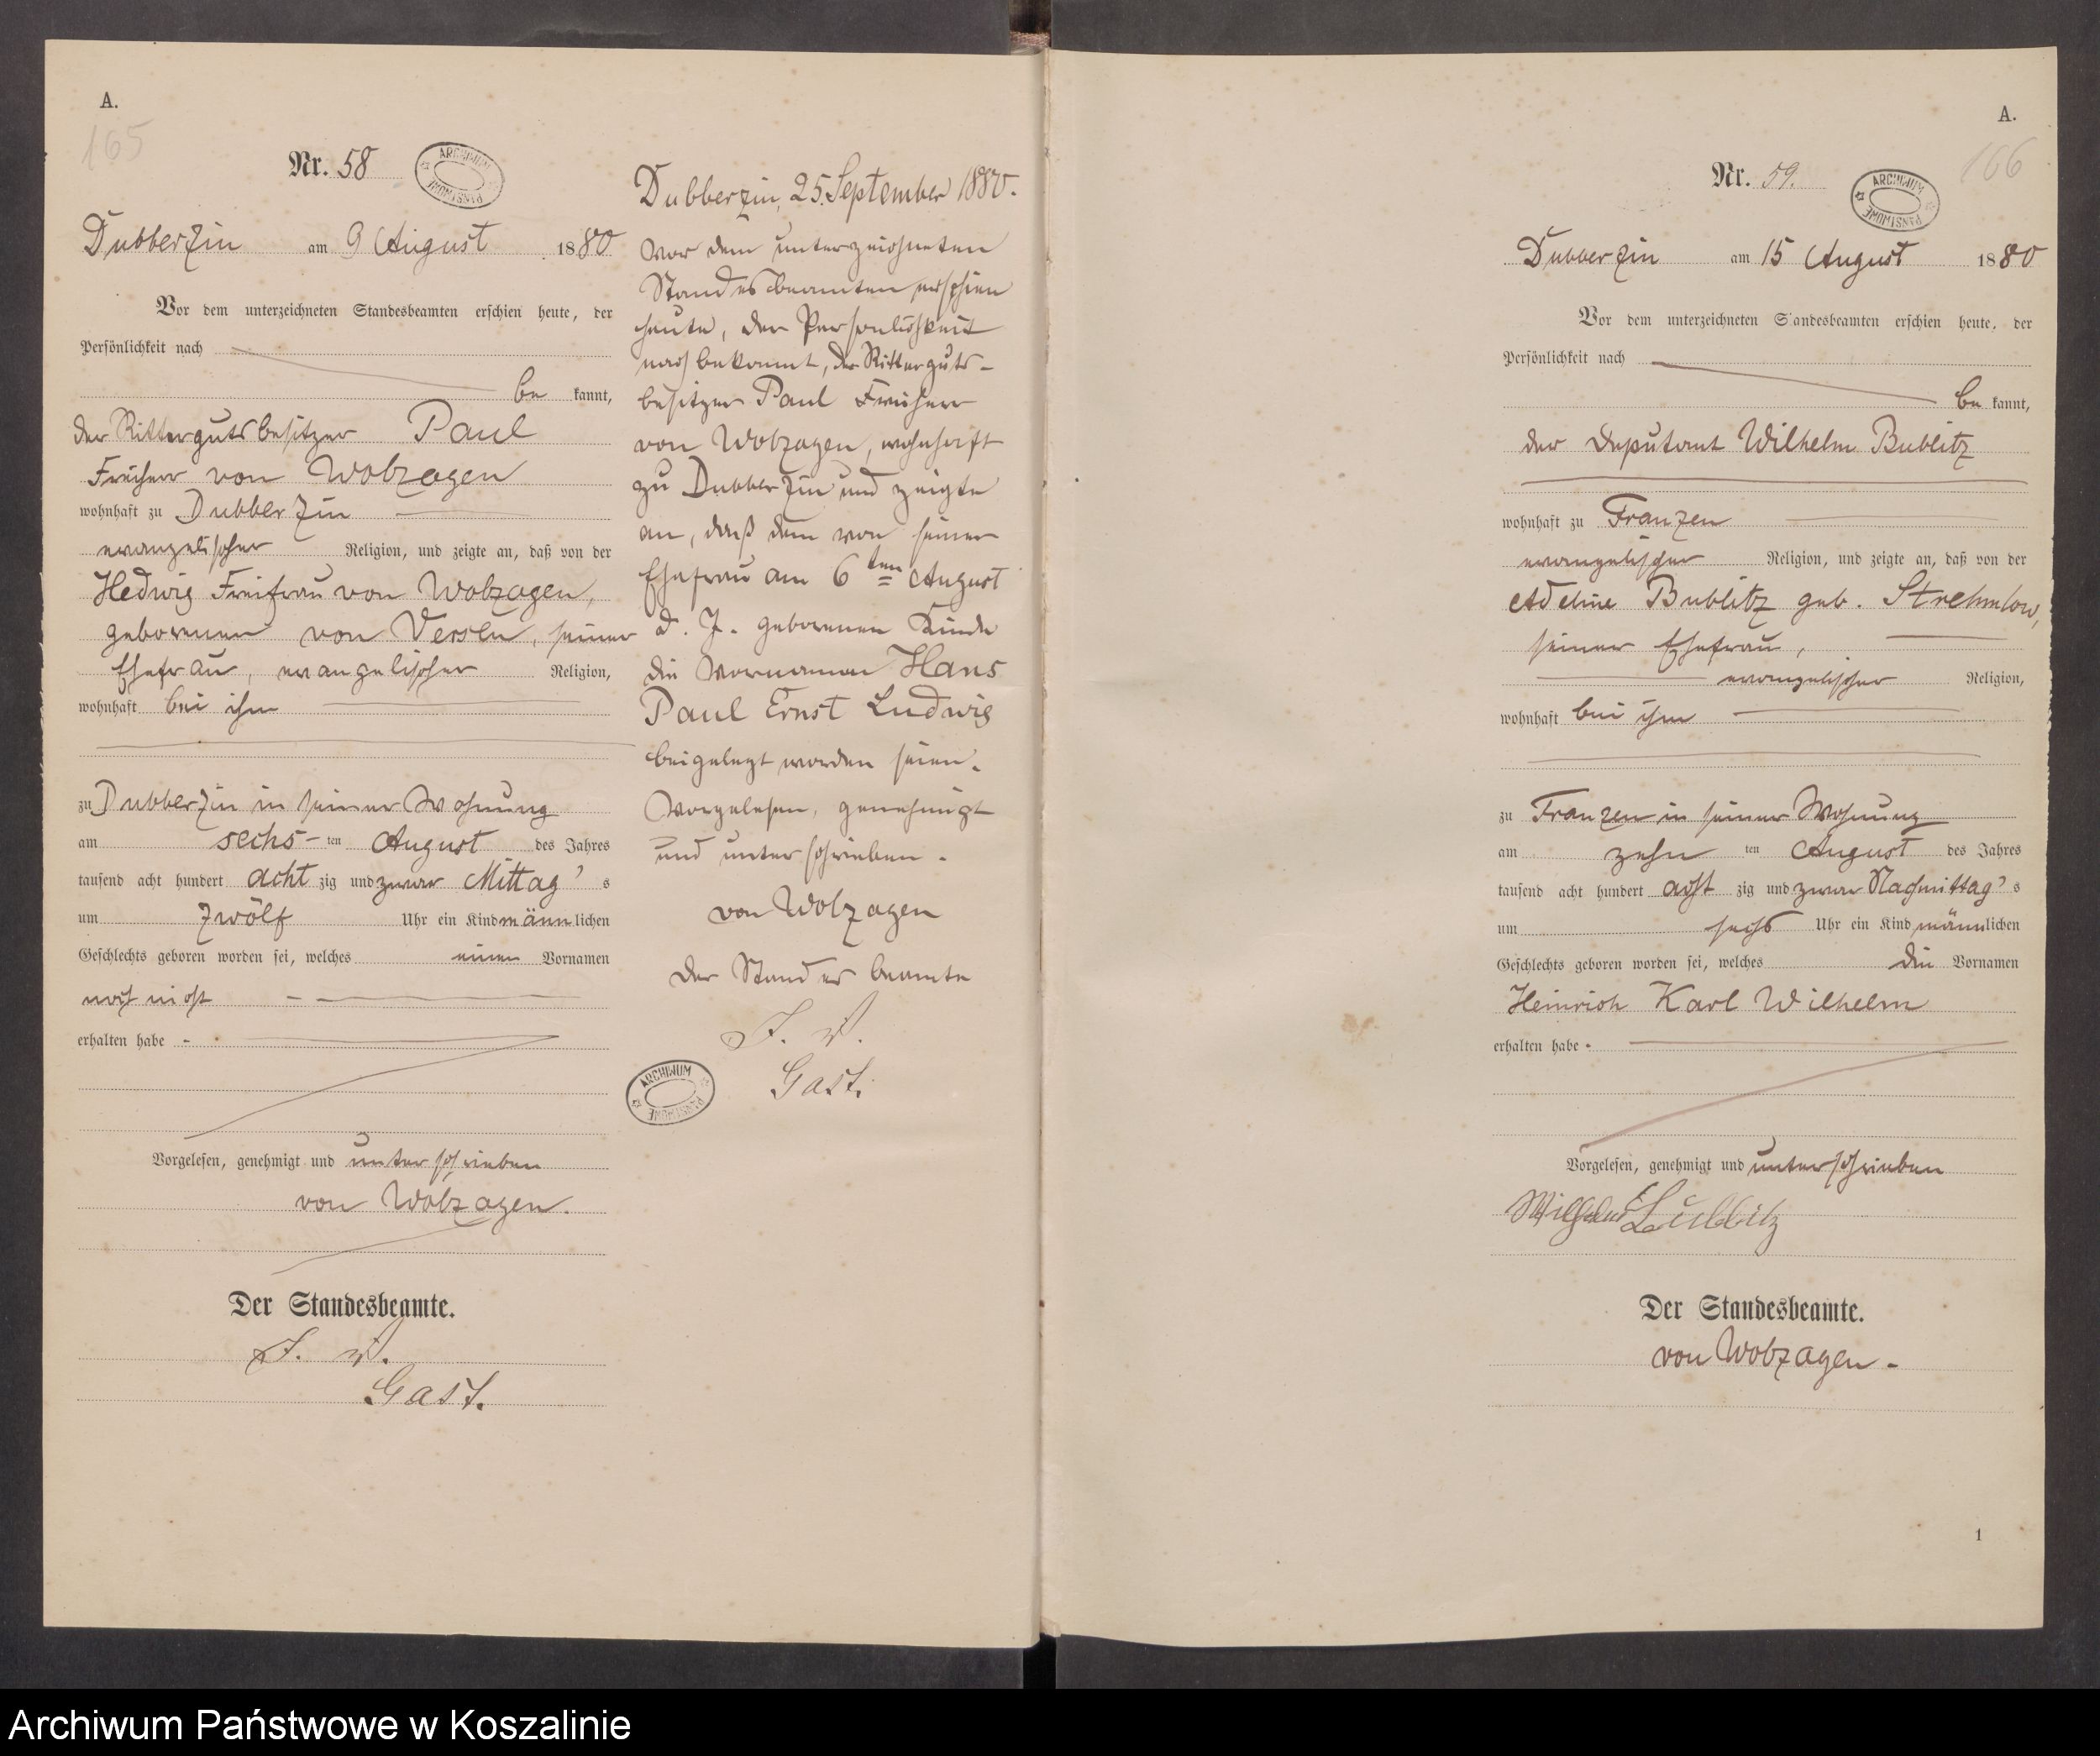 A.
165
Nr. 58
ARCHIWUM PAŃSTWOWE
Dubberzin am 9 August 1880
Vor dem unterzeichneten Standesbeamten erschien heute, der
Persönlichkeit nach
be kannt,
der Rittergutsbesitzer Paul
Freiherr von Wolzogen
wohnhaft zu Dubberzin
evangelischer Religion, und zeigte an, daß von der
Hedwig Freifrau von Wolzogen,
geborenen von Versen, seiner
Ehefrau, evangelischer Religion,
wohnhaft bei ihm
zu Dubberzin in seiner Wohnung
am sechs-ten August des Jahres
tausend acht hundert acht zig und zwar Mittag's
um zwölf Uhr ein Kind männlichen
Geschlechts geboren worden sei, welches einen Vornamen
noch nicht
erhalten habe -
Vorgelesen, genehmigt und unterschrieben
von Wolzogen.
Der Standesbeamte.
J. V.
Gast.
Dubberzin, 25. September 1880.
Vor dem unterzeichneten
Standesbeamten erschien
heute, der Persönlichkeit
nach bekannt, der Ritterguts-
besitzer Paul Freiherr
von Wolzogen, wohnhaft
zu Dubberzin und zeigte
an, daß dem von seiner
Ehefrau am 6ten August
d. J. geborenen Kinde
die Vornamen Hans
Paul Ernst Ludwig
beigelegt worden seien.
Vorgelesen, genehmigt
und unterschrieben.
von Wolzogen
Der Standesbeamte
J. V.
Gast.
ARCHIWUM PAŃSTWOWE
A.
166
Nr. 59.
ARCHIWUM PAŃSTWOWE
Dubberzin am 15 August 1880
Vor dem unterzeichneten Standesbeamten erschien heute, der
Persönlichkeit nach
be kannt,
der Deputant Wilhelm Bublitz
wohnhaft zu Franzen
evangelischer Religion, und zeigte an, daß von der
Adeline Bublitz geb. Strehmlow,
seiner Ehefrau,
evangelischer Religion,
wohnhaft bei ihm
zu Franzen in seiner Wohnung
am zehn ten August des Jahres
tausend acht hundert acht zig und zwar Nachmittag's
um sechs Uhr ein Kind männlichen
Geschlechts geboren worden sei, welches die Vornamen
Heinrich Karl Wilhelm
erhalten habe.
Vorgelesen, genehmigt und unterschrieben
Wilhelm Bublitz
Der Standesbeamte.
von Wolzogen.
1
Archiwum Państwowe w Koszalinie